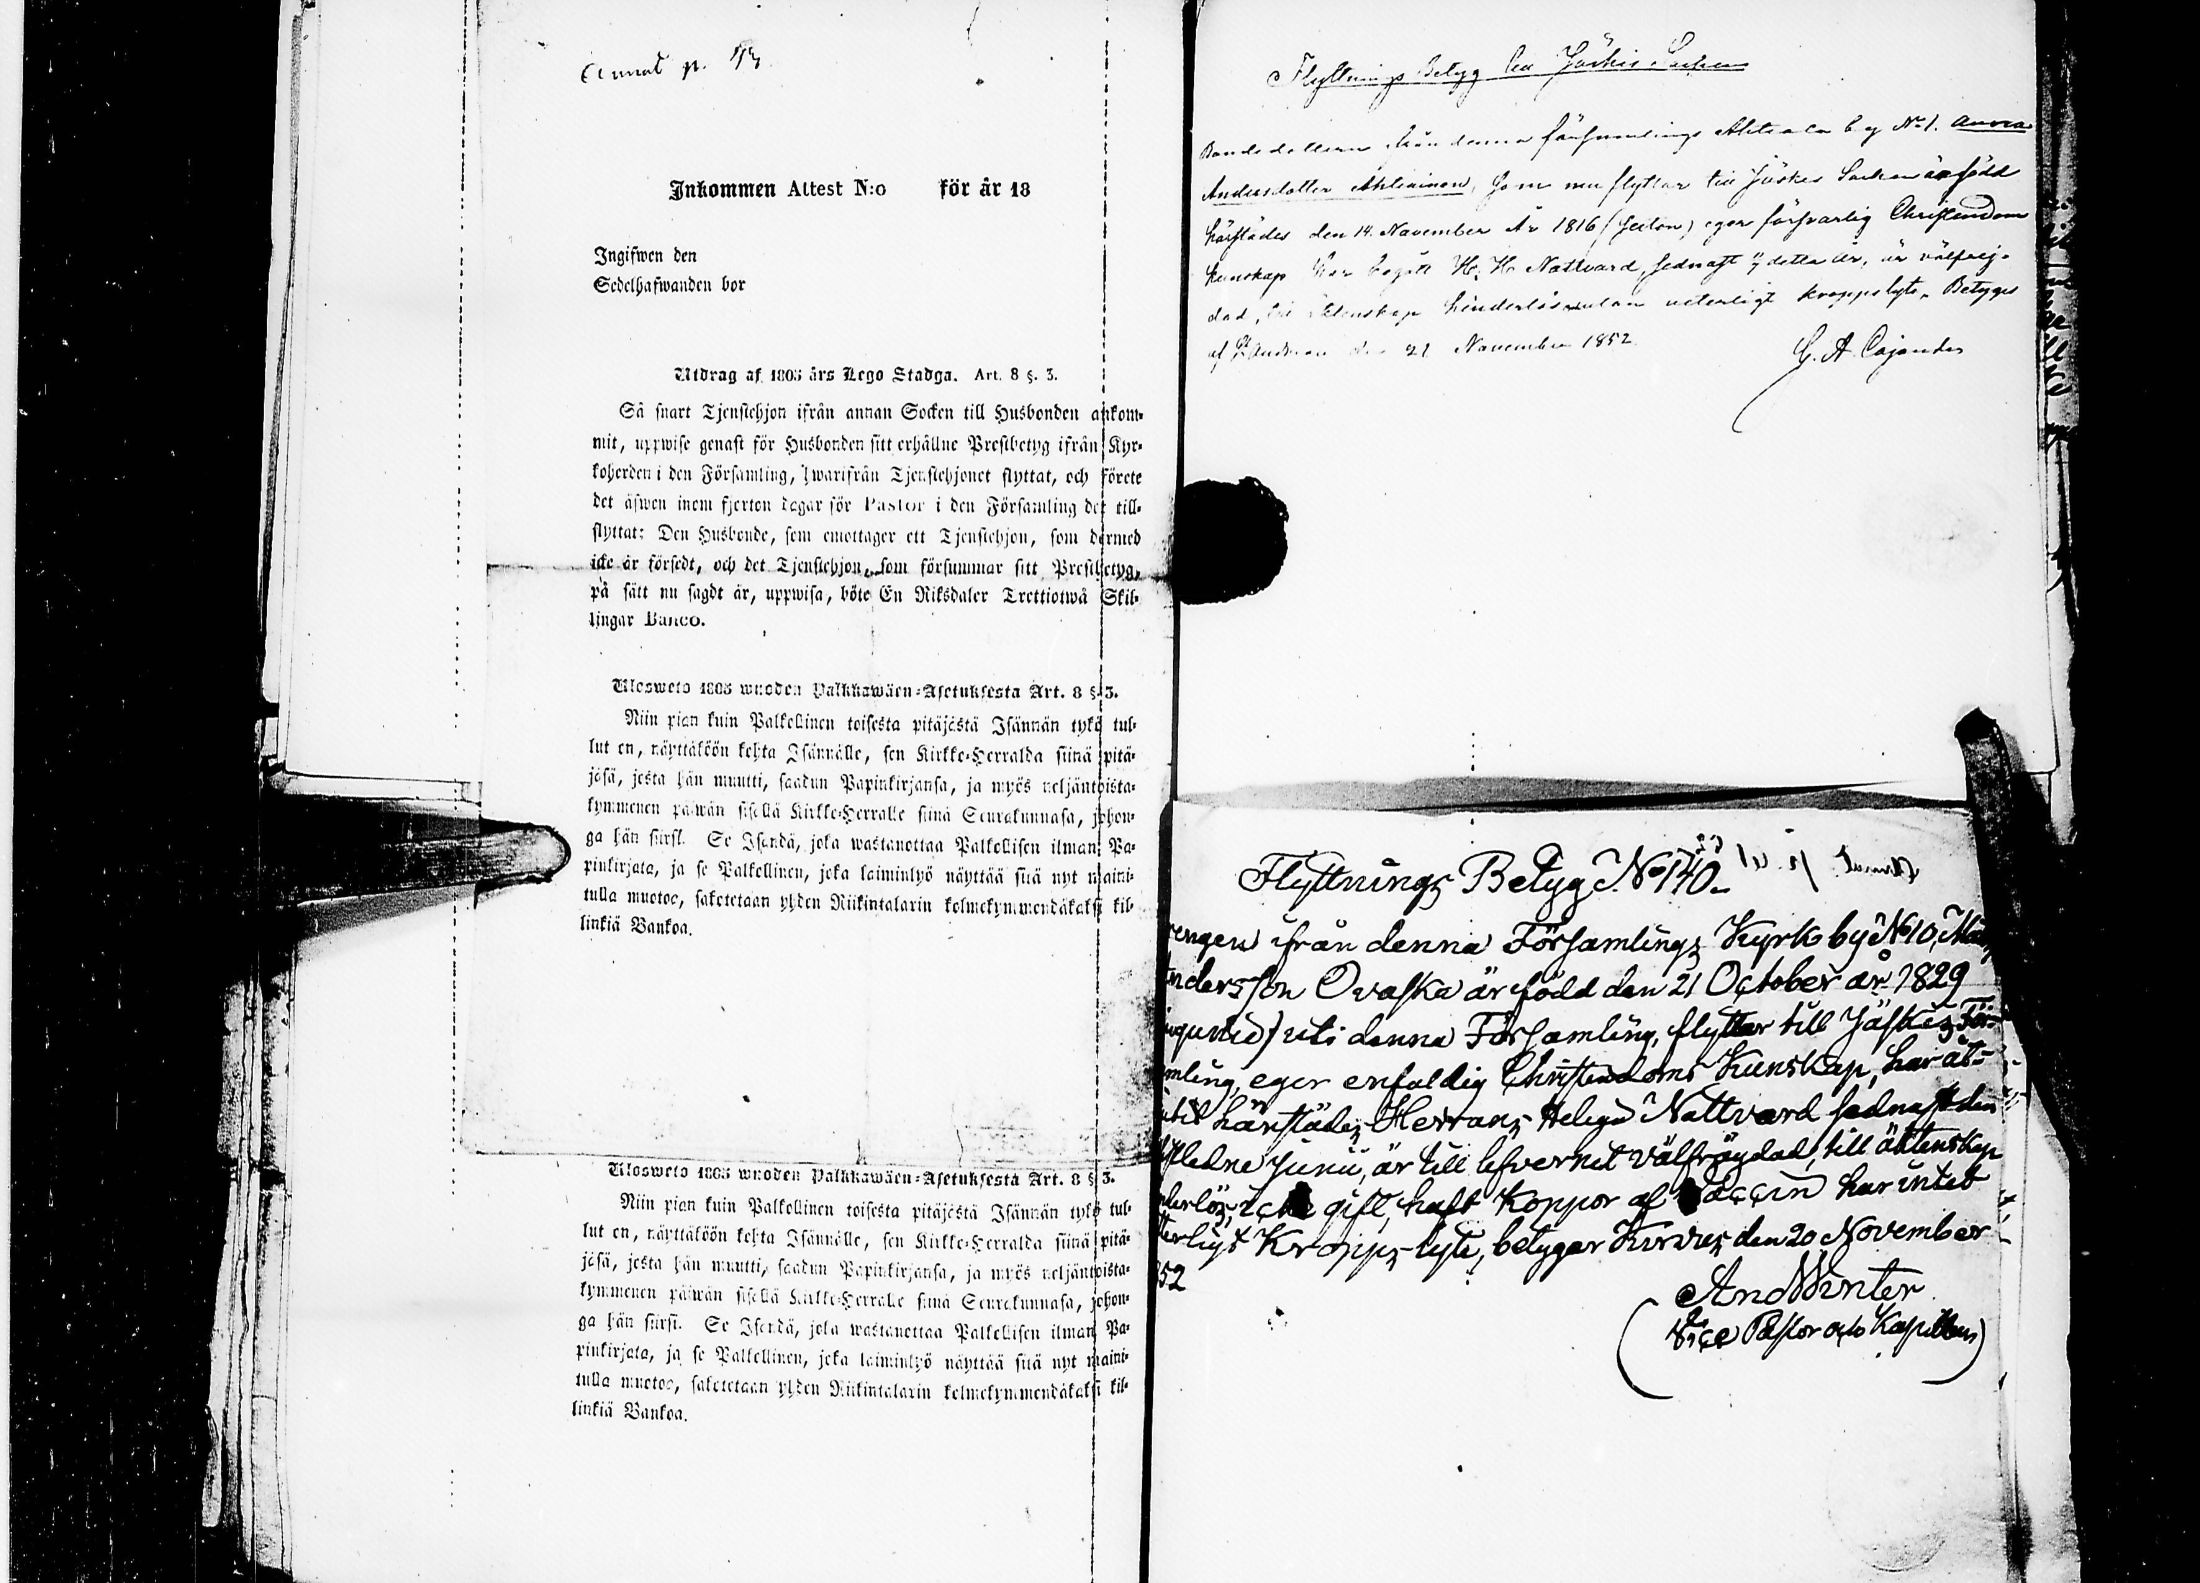 Annat p. 43
Inkommen Attest N:o för år 18
Ingifwen den
Sedelhafwanden bor
Utdrag af 1805 års Lego Stadga. Art. 8 §. 3.
Så snart Tjenstehjon ifrån annan Socken till Husbonden ankom-
mit, uppwise genast för Husbonden sitt erhållne Prestbetyg ifrån Kyr-
koherden i den Församling, hwarifrån Tjenstehjonet flyttat, och förete
det äfwen inom fjorton dagar för Pastor i den Församling det till-
flyttat: Den Husbonde, som emottager ett Tjenstehjon, som dermed
icke är försedt, och det Tjenstehjon, som försummar sitt Prestbetyg,
på sätt nu sagdt är, uppwisa, böte En Riksdaler Trettiotwå Skil-
lingar Banco.
Ulosweto 1805 wuoden Palkkawäen-Asetuksesta Art. 8 §. 3.
Niin pian kuin Palkollinen toisesta pitäjästä Isännän tykö tul-
lut on, näyttäköön kohta Isännälle, sen Kirkko-Herralda siinä pitä-
jäsä, josta hän muutti, saadun Papinkirjansa, ja myös neljäntoista-
kymmenen päiwän sisellä Kirkko-Herralle siinä Seurakunnasa, johon-
ga hän siirsi. Se Isändä, joka wastanottaa Palkollisen ilman Pa-
pinkirjata, ja se Palkollinen, joka laiminlyö näyttää sitä nyt maini-
tulla muotoo, saketetaan yhden Riikintalarin kolmekymmendäkaksi kil-
linkiä Bankoa.
Ulosweto 1805 wuoden Palkkawäen-Asetuksesta Art. 8 §. 3.
Niin pian kuin Palkollinen toisesta pitäjästä Isännän tykö tul-
lut on, näyttäköön kohta Isännälle, sen Kirkko-Herralda siinä pitä-
jäsä, josta hän muutti, saadun Papinkirjansa, ja myös neljäntoista-
kymmenen päiwän sisellä Kirkko-Herralle siinä Seurakunnasa, johon-
ga hän siirsi. Se Isändä, joka wastanottaa Palkollisen ilman Pa-
pinkirjata, ja se Palkollinen, joka laiminlyö näyttää sitä nyt maini-
tulla muotoo, saketetaan yhden Riikintalarin kolmekymmendäkaksi kil-
linkiä Bankoa.
Flyttnings Betyg till Jäskis Socken
Bondedottern ifrån denna församlings by No 1. Anna
Andersdotter Ahtiainen, som nu flyttar till Jäskis Socken är född
härstädes den 14. November År 1816 (sexton) eger försvarlig Christendoms
kunskap har begått H. H. Nattvard, sednast i detta år, är välfrej-
dad, till äktenskap hinderlös utan veterligt kroppslyte. Betygas
af St Andreae den 21 November 1852.
G. A. Cajander
Flyttnings Betyg No 140.
rengen ifrån denna Församlings Kyrkoby No 10,
ndersson Ovaska är född den 21 October år 1829
uti denna Församling, flyttar till Jäskis För-
mling, eger enfaldig Christendoms Kunskap, har åt-
härstädes Herrans Heliga Nattvard sednast den
Junii, är till lefvernet välfrägdad, till äktenskap
derlös, icke gift, haft Koppor af Vaccin har intet
terligt Kropps-lyte, betygar Kirvus den 20 November
52
And Winter
(Vice Pastor och Kapellan)